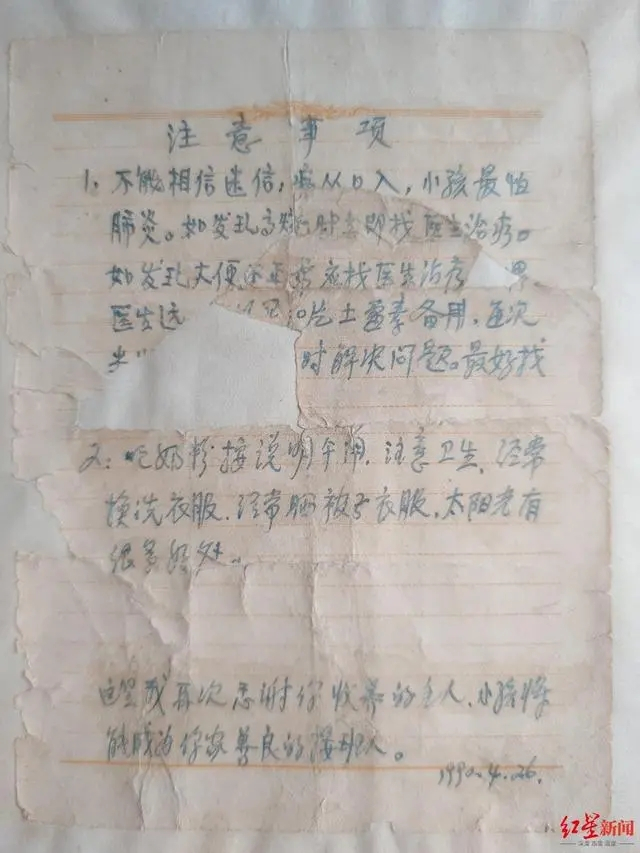 注意事项
1. 不能相信迷信,病从口入,小孩最怕
肺炎。如发现高烧 时立即找医生治疗。
如发现大便不正常应找医生治疗
医生远 片土霉素备用,
时解决问题。最好找
2: 吃奶粉按说明牟用,注意卫生,经常
换洗衣服,经常晒被子衣服,太阳光有
很多好处。
这里我再次感谢你收养的主人,小孩将
能成为你家善良的接班人。
1990.4.26.
红星新闻
深度 态度 温度